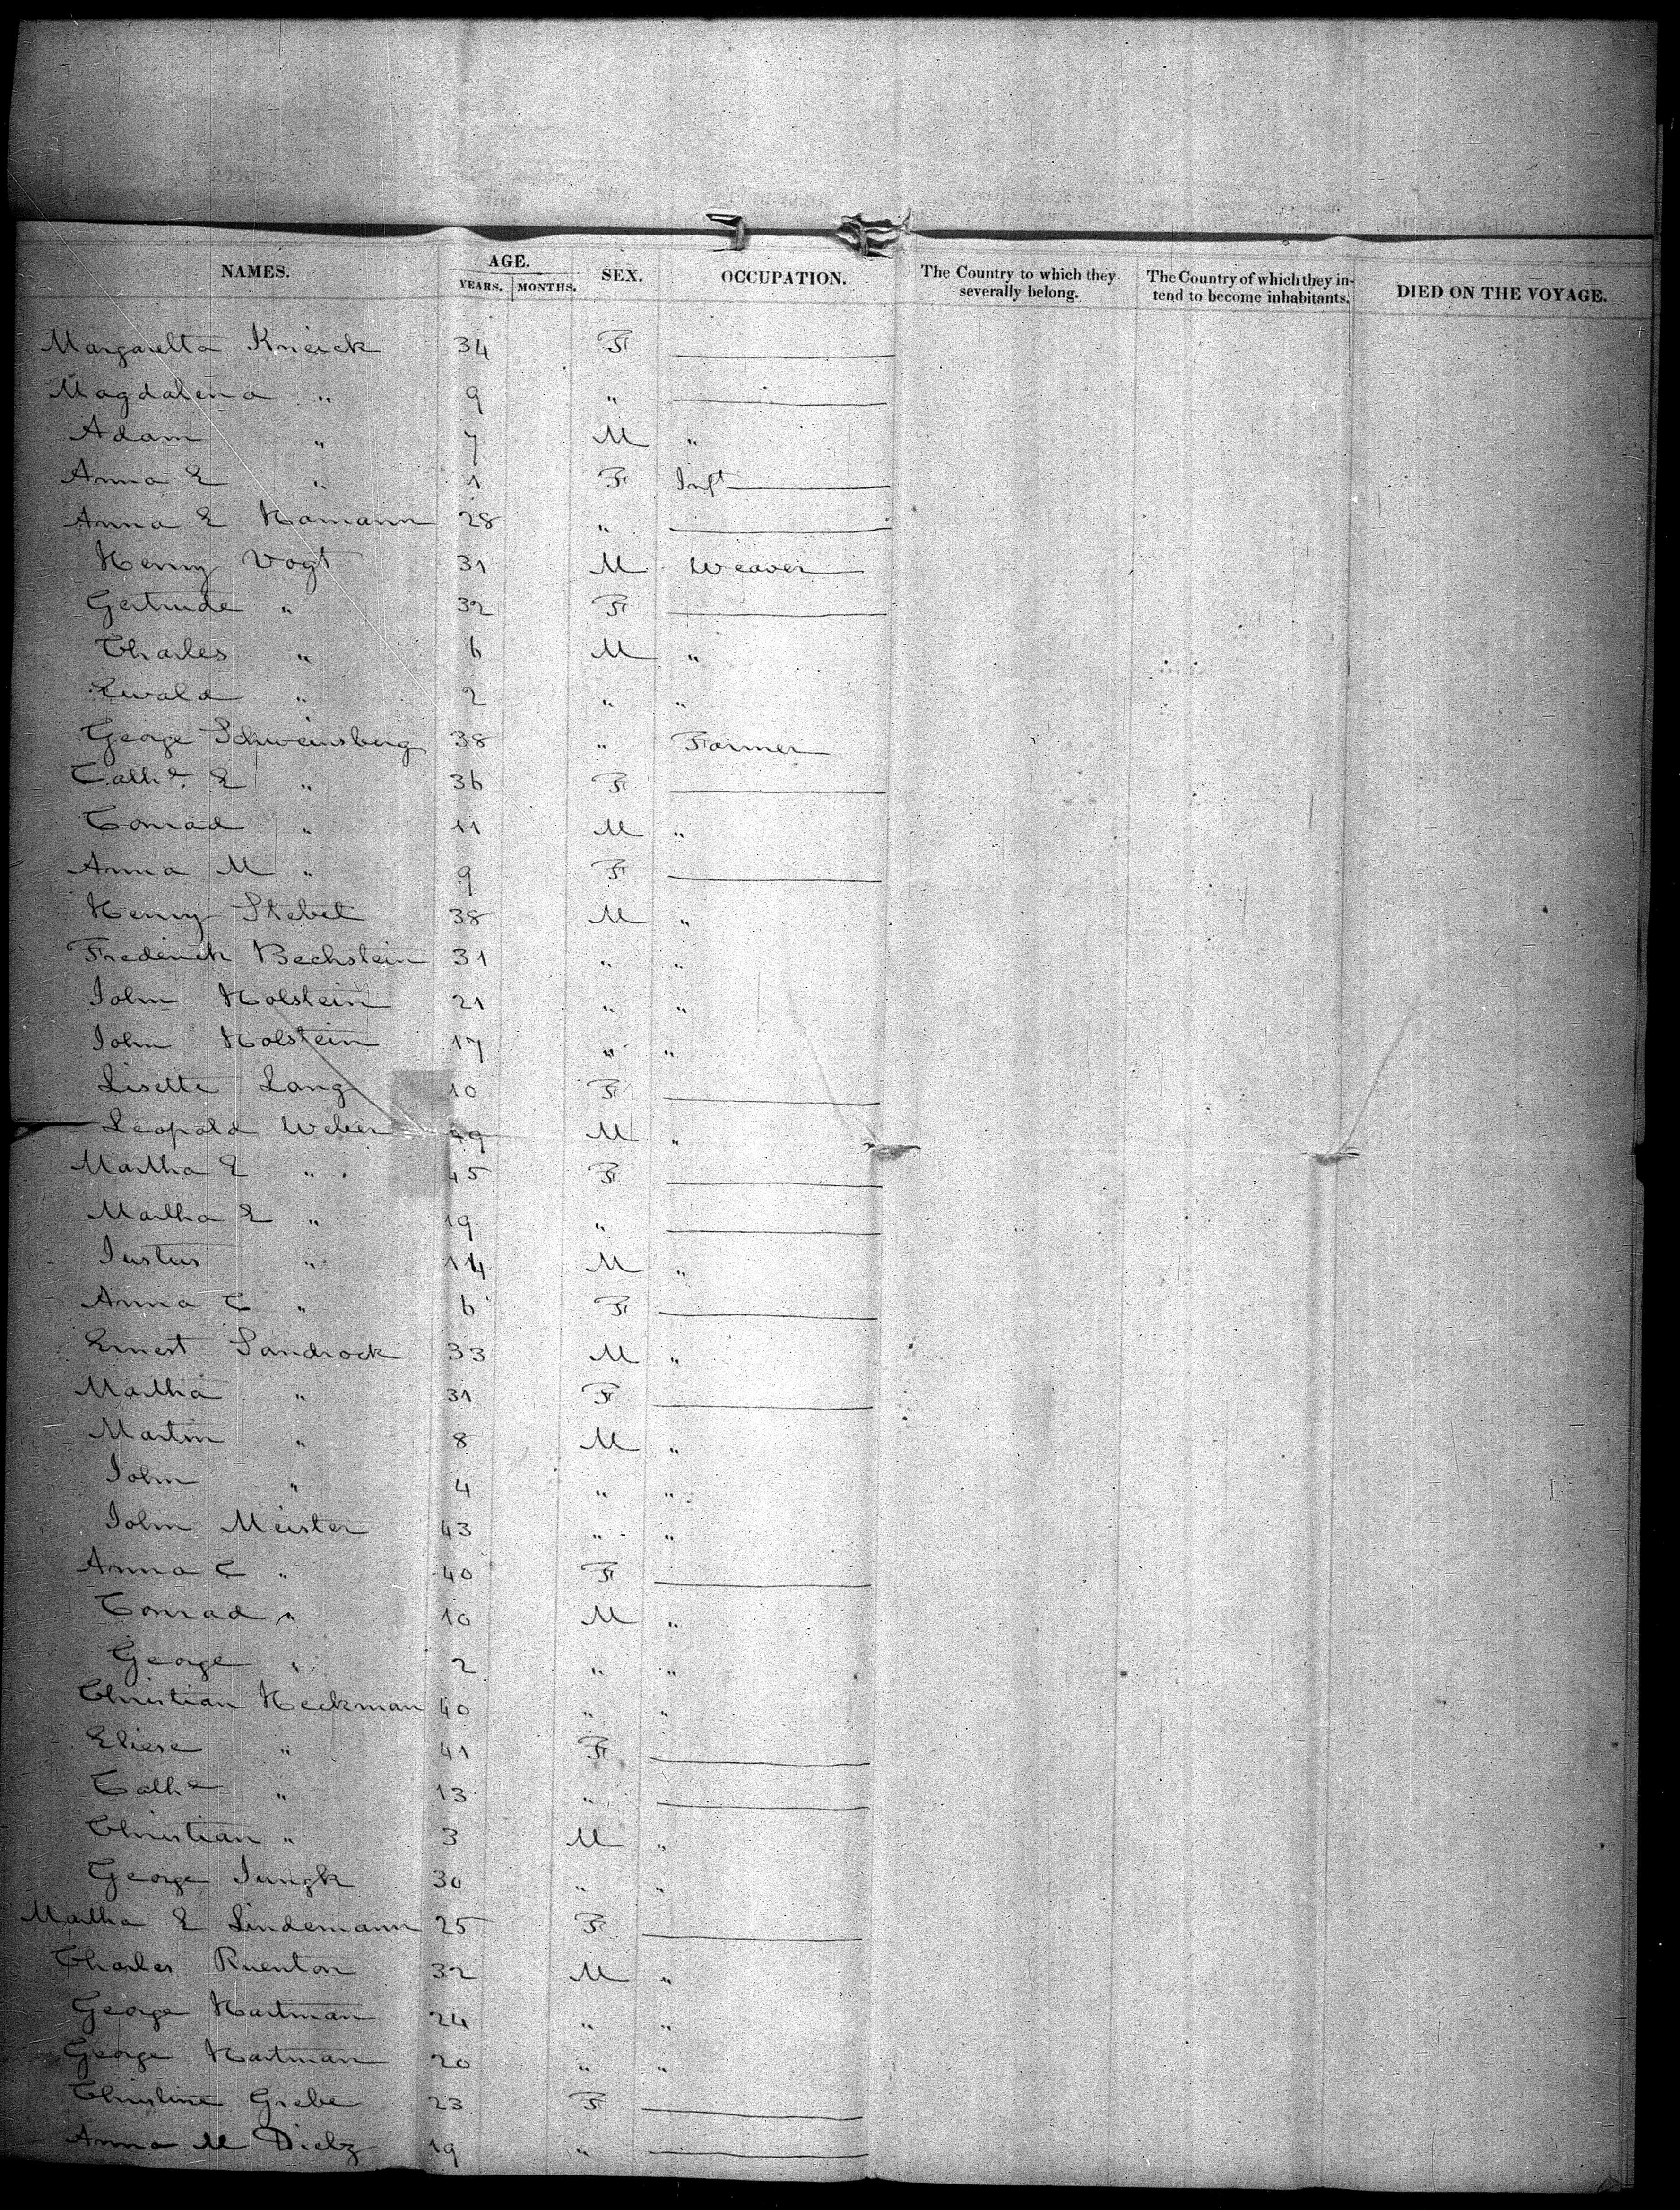 NAMES. AGE. YEARS. MONTHS. SEX. OCCUPATION. The Country to which they severally belong. The Country of which they intend to become inhabitants. DIED ON THE VOYAGE.
Margaretta Kneick 34 F
Magdalena " 9 "
Adam " 7 M "
Anna E " 1 F Inft
Anna E Hamann 28 "
Henry Vogt 31 M Weaver
Gertrude " 32 F
Charles " 6 M "
Ewald " 2 " "
George Schweinsberg 38 " Farmer
Cathe. E " 36 F
Conrad " 11 M "
Anna M " 9 F
Henry Stebel 38 M "
Frederick Bechstein 31 " "
John Holstein 21 " "
John Holstein 17 " "
Lisette Lang 10 F
Leopold Weber 49 M "
Martha E " 45 F
Martha E " 19 "
Justus " 14 M "
Anna C " 6 F
Ernest Sandrock 33 M "
Martha " 31 F
Martin " 8 M "
John " 4 " "
John Meister 43 " "
Anna C " 40 F
Conrad " 10 M "
George " 2 " "
Christian Heckman 40 " "
Eliese " 41 F
Cathe " 13 "
Christian " 3 M "
George Jungk 30 " "
Martha E Lindemann 25 F
Charles Ruenton 32 M "
George Hartman 24 " "
George Hartman 20 " "
Christine Grebe 23 F
Anna M Dietz 19 "